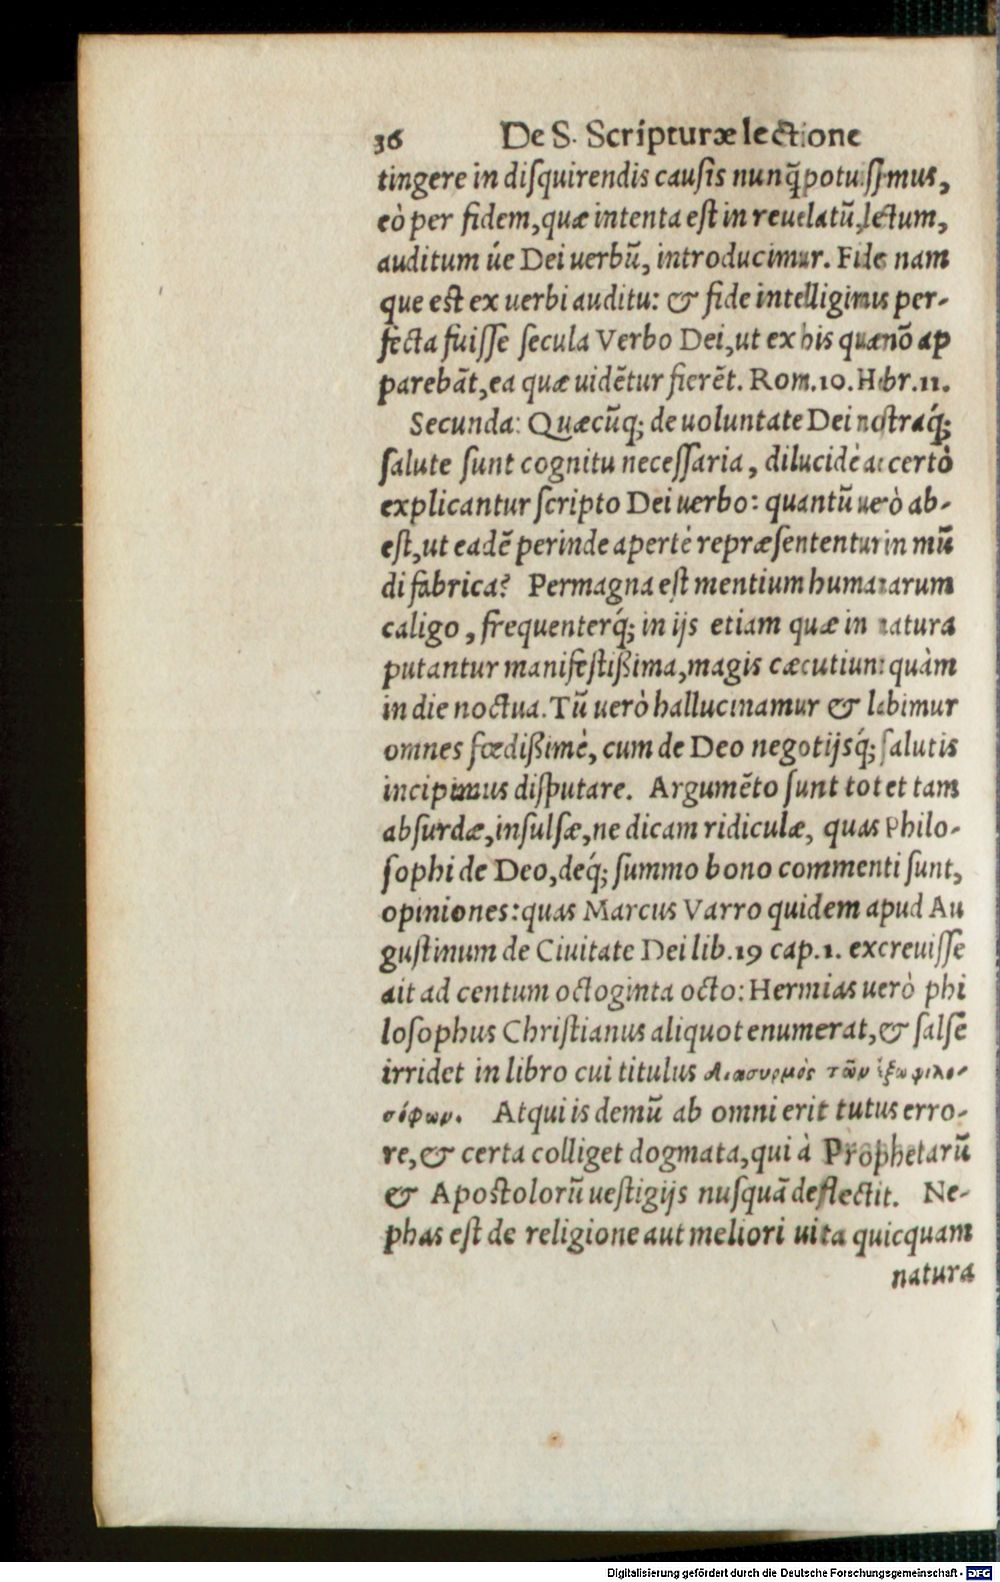 36 De S. Scripturæ lectione
tingere in diſquirendis cauſis nunq̃ potuiſſemus,
eò per fidem, quæ intenta eſt in reuelatũ, lectum,
auditum úe Dei uerbũ, introducimur. Fide nam
que eſt ex uerbi auditu: & fide intelligimus per-
fecta fuiſſe ſecula Verbo Dei, ut ex his quæ nõ ap
parebãt, ea quæ uidẽtur fierẽt. Rom.10. Hebr.11.
Secunda: Quæcũq; de uoluntate Dei noſtraq́;
ſalute ſunt cognitu neceſſaria, dilucidè ac certò
explicantur ſcripto Dei uerbo: quantũ uerò ab-
eſt, ut eadẽ perinde apertè repræſententur in mũ
di fabrica? Permagna eſt mentium humanarum
caligo, frequenterq́; in ijs etiam quæ in natura
putantur manifeſtißima, magis cæcutiunt quàm
in die noctua. Tũ uerò hallucinamur & labimur
omnes fœdißimè, cum de Deo negotijsq́; ſalutis
incipimus diſputare. Argumẽto ſunt tot et tam
abſurdæ, inſulſæ, ne dicam ridiculæ, quas Philo-
ſophi de Deo, deq́; ſummo bono commenti ſunt,
opiniones: quas Marcus Varro quidem apud Au
guſtinum de Ciuitate Dei lib.19 cap.1. excreuiſſe
ait ad centum octoginta octo: Hermias uerò phi
loſophus Chriſtianus aliquot enumerat, & ſalſẽ
irridet in libro cui titulus Διασυρμὸς τῶν ἔξω φιλο-
σόφων. Atqui is demũ ab omni erit tutus erro-
re, & certa colliget dogmata, qui à Prophetarũ
& Apoſtolorũ ueſtigijs nuſquã deflectit. Ne-
phas eſt de religione aut meliori uita quicquam
natura
Digitalisierung gefördert durch die Deutsche Forschungsgemeinschaft - DFG